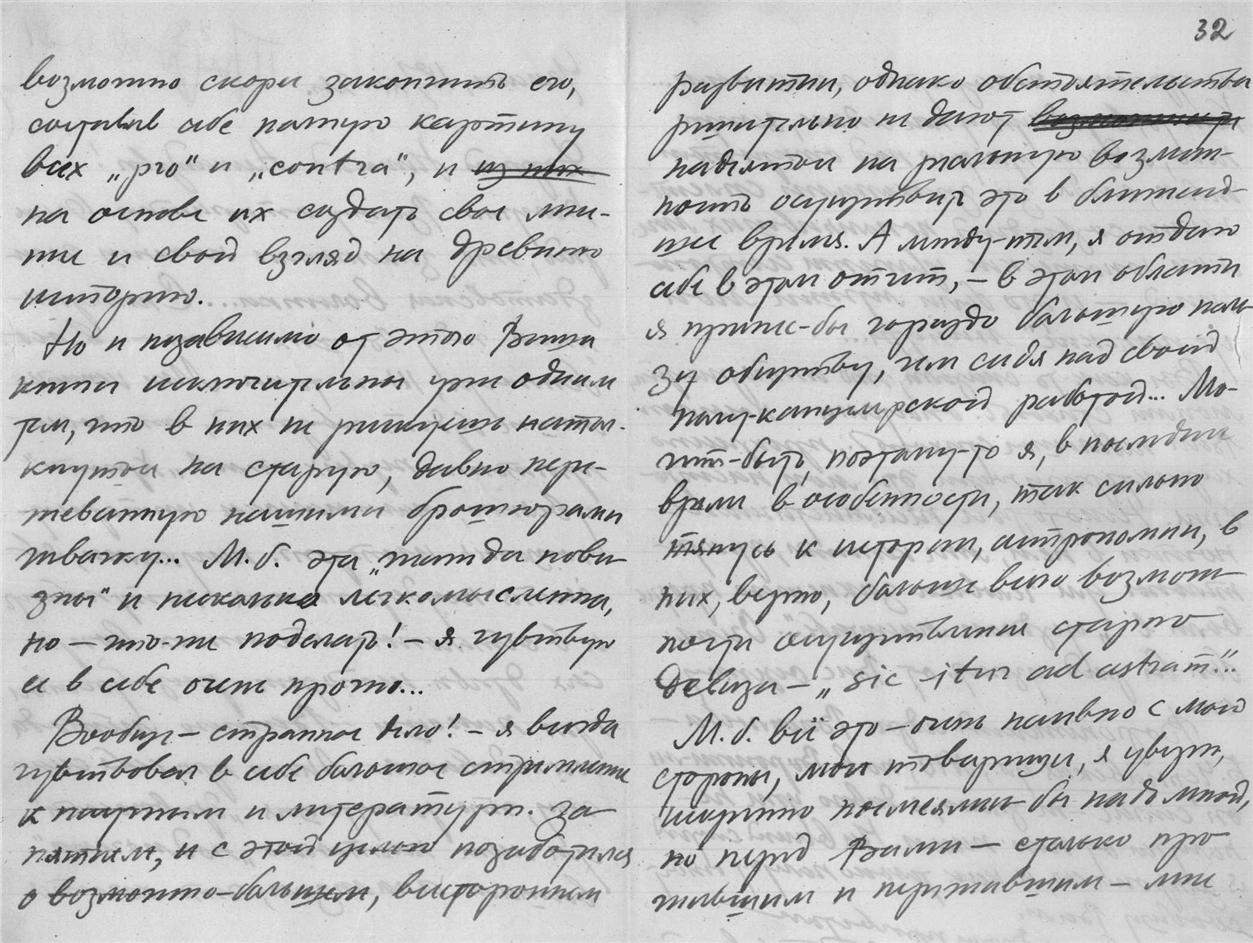 возможно скорее закончить его,
составив себе полную картину
всех „pro“ и „contra“, и из них
на основе их создать свое мне-
ние и свой взгляд на древнюю
историю.
Но и независимо от этого Ваши
книги исключительны уже одним
тем, что в них не рискуешь натол-
кнуться на старую, давно пере-
жеванную нашими брошюрами
жвачку... М.б. эта „жажда нови-
зны“ и несколько легкомысленна,
но – что-же поделать! – я чувствую
ее в себе очень прочно...
Вообще – странное дело! – я всегда
чувствовал в себе большое стремление
к научным и литературн. за-
нятиям, и с этой целью позаботился
о возможно-большем, всестороннем
32
развитии, однако обстоятельства
решительно не дают возможности
надеяться на реальную возмож-
ность осуществить это в ближайш-
шее время. А между-тем, я отдаю
себе в этом отчет, – в этой области
я принес-бы гораздо большую поль-
зу обществу, чем сидя над своей
полу-канцелярской работой... Мо-
жет-быть, поэтому-то я, в последнее
время в особенности, так сильно
тянусь к истории, астрономии, в
них, верно, больше всего возмож-
ности осуществления старого
девиза – „sic itur ad astram“...
М.б. всё это – очень наивно с моей
стороны, мои товарищи, я уверен,
искренно посмеялись-бы надо мной,
но перед Вами – столько про
жившим и пережившим – мне